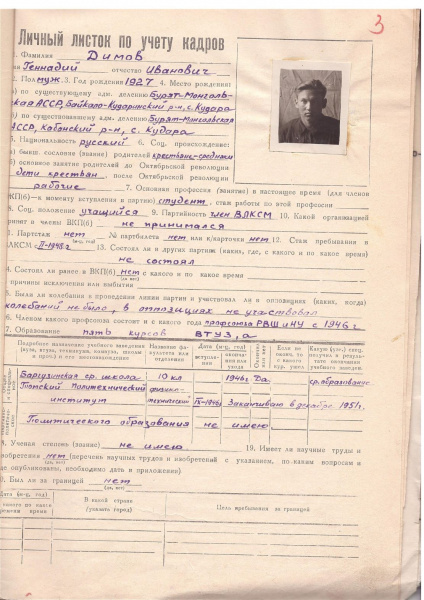 3
Личный листок по учету кадров
1. Фамилия Димов
имя Геннадий отчество Иванович
2. Пол муж. 3. Год рождения 1927 4. Место рождения:
а) по существующему адм. делению Бурят-Монголь-
ская АССР, Байкало-Кударинский р-н, с. Кудара
б) по существовавшему адм. делению Бурят-Монгольская
АССР, Кабанский р-н, с. Кудара
5. Национальность русский 6. Соц. происхождение:
а) бывш. сословия (звания) родителей крестьяне-середняки
б) основное занятие родителей до Октябрьской революции
дети крестьян, после Октябрьской революции
рабочие 7. Основная профессия (занятие) в настоящее время (для членов
ВКП(б) — к моменту вступления в партию) студент, стаж работы по этой профессии
8. Соц. положение учащийся 9. Партийность член ВЛКСМ 10. Какой организацией
принят в члены ВКП(б) не принимался
11. Партстаж нет № партбилета нет или к/карточки нет 12. Стаж пребывания в
ВЛКСМ с II-1943 г. 13. Состоял ли в других партиях (каких, где, с какого и по какое время)
не состоял
14. Состоял ли ранее в ВКП(б) нет с какого и по какое время
(да, нет)
и причины исключения или выбытия
15. Были ли колебания в проведении линии партии и участвовал ли в оппозициях (каких, когда)
колебаний не было, в оппозициях не участвовал
16. Членом какого профсоюза состоит и с какого года профсоюза РВШ и НУ с 1946 г.
17. Образование пять курсов ВТУЗ,а
Подробное название учебного заведения Название факультета или отделения Дата (м-ц, год) вступления окончания или ухода Если не окончил, то с какого курса ушел
Баргузинская ср. школа 10 кл 1946 г. Да ср. образование
Томский Политехнический физико-
институт технический IX-1946 г. Заканчиваю в декабре 1951 г.
Политического образования не имею
18. Ученая степень (звание) не имею 19. Имеет ли научные труды и
изобретения нет (перечень научных трудов и изобретений с указанием, по каким вопросам и
где опубликованы, необходимо дата и приложении)
20. Был ли за границей нет
(да, нет)
Дата (м-ц, год) В какой стране Цель пребывания за границей
с какого времени по какое время (указать город)